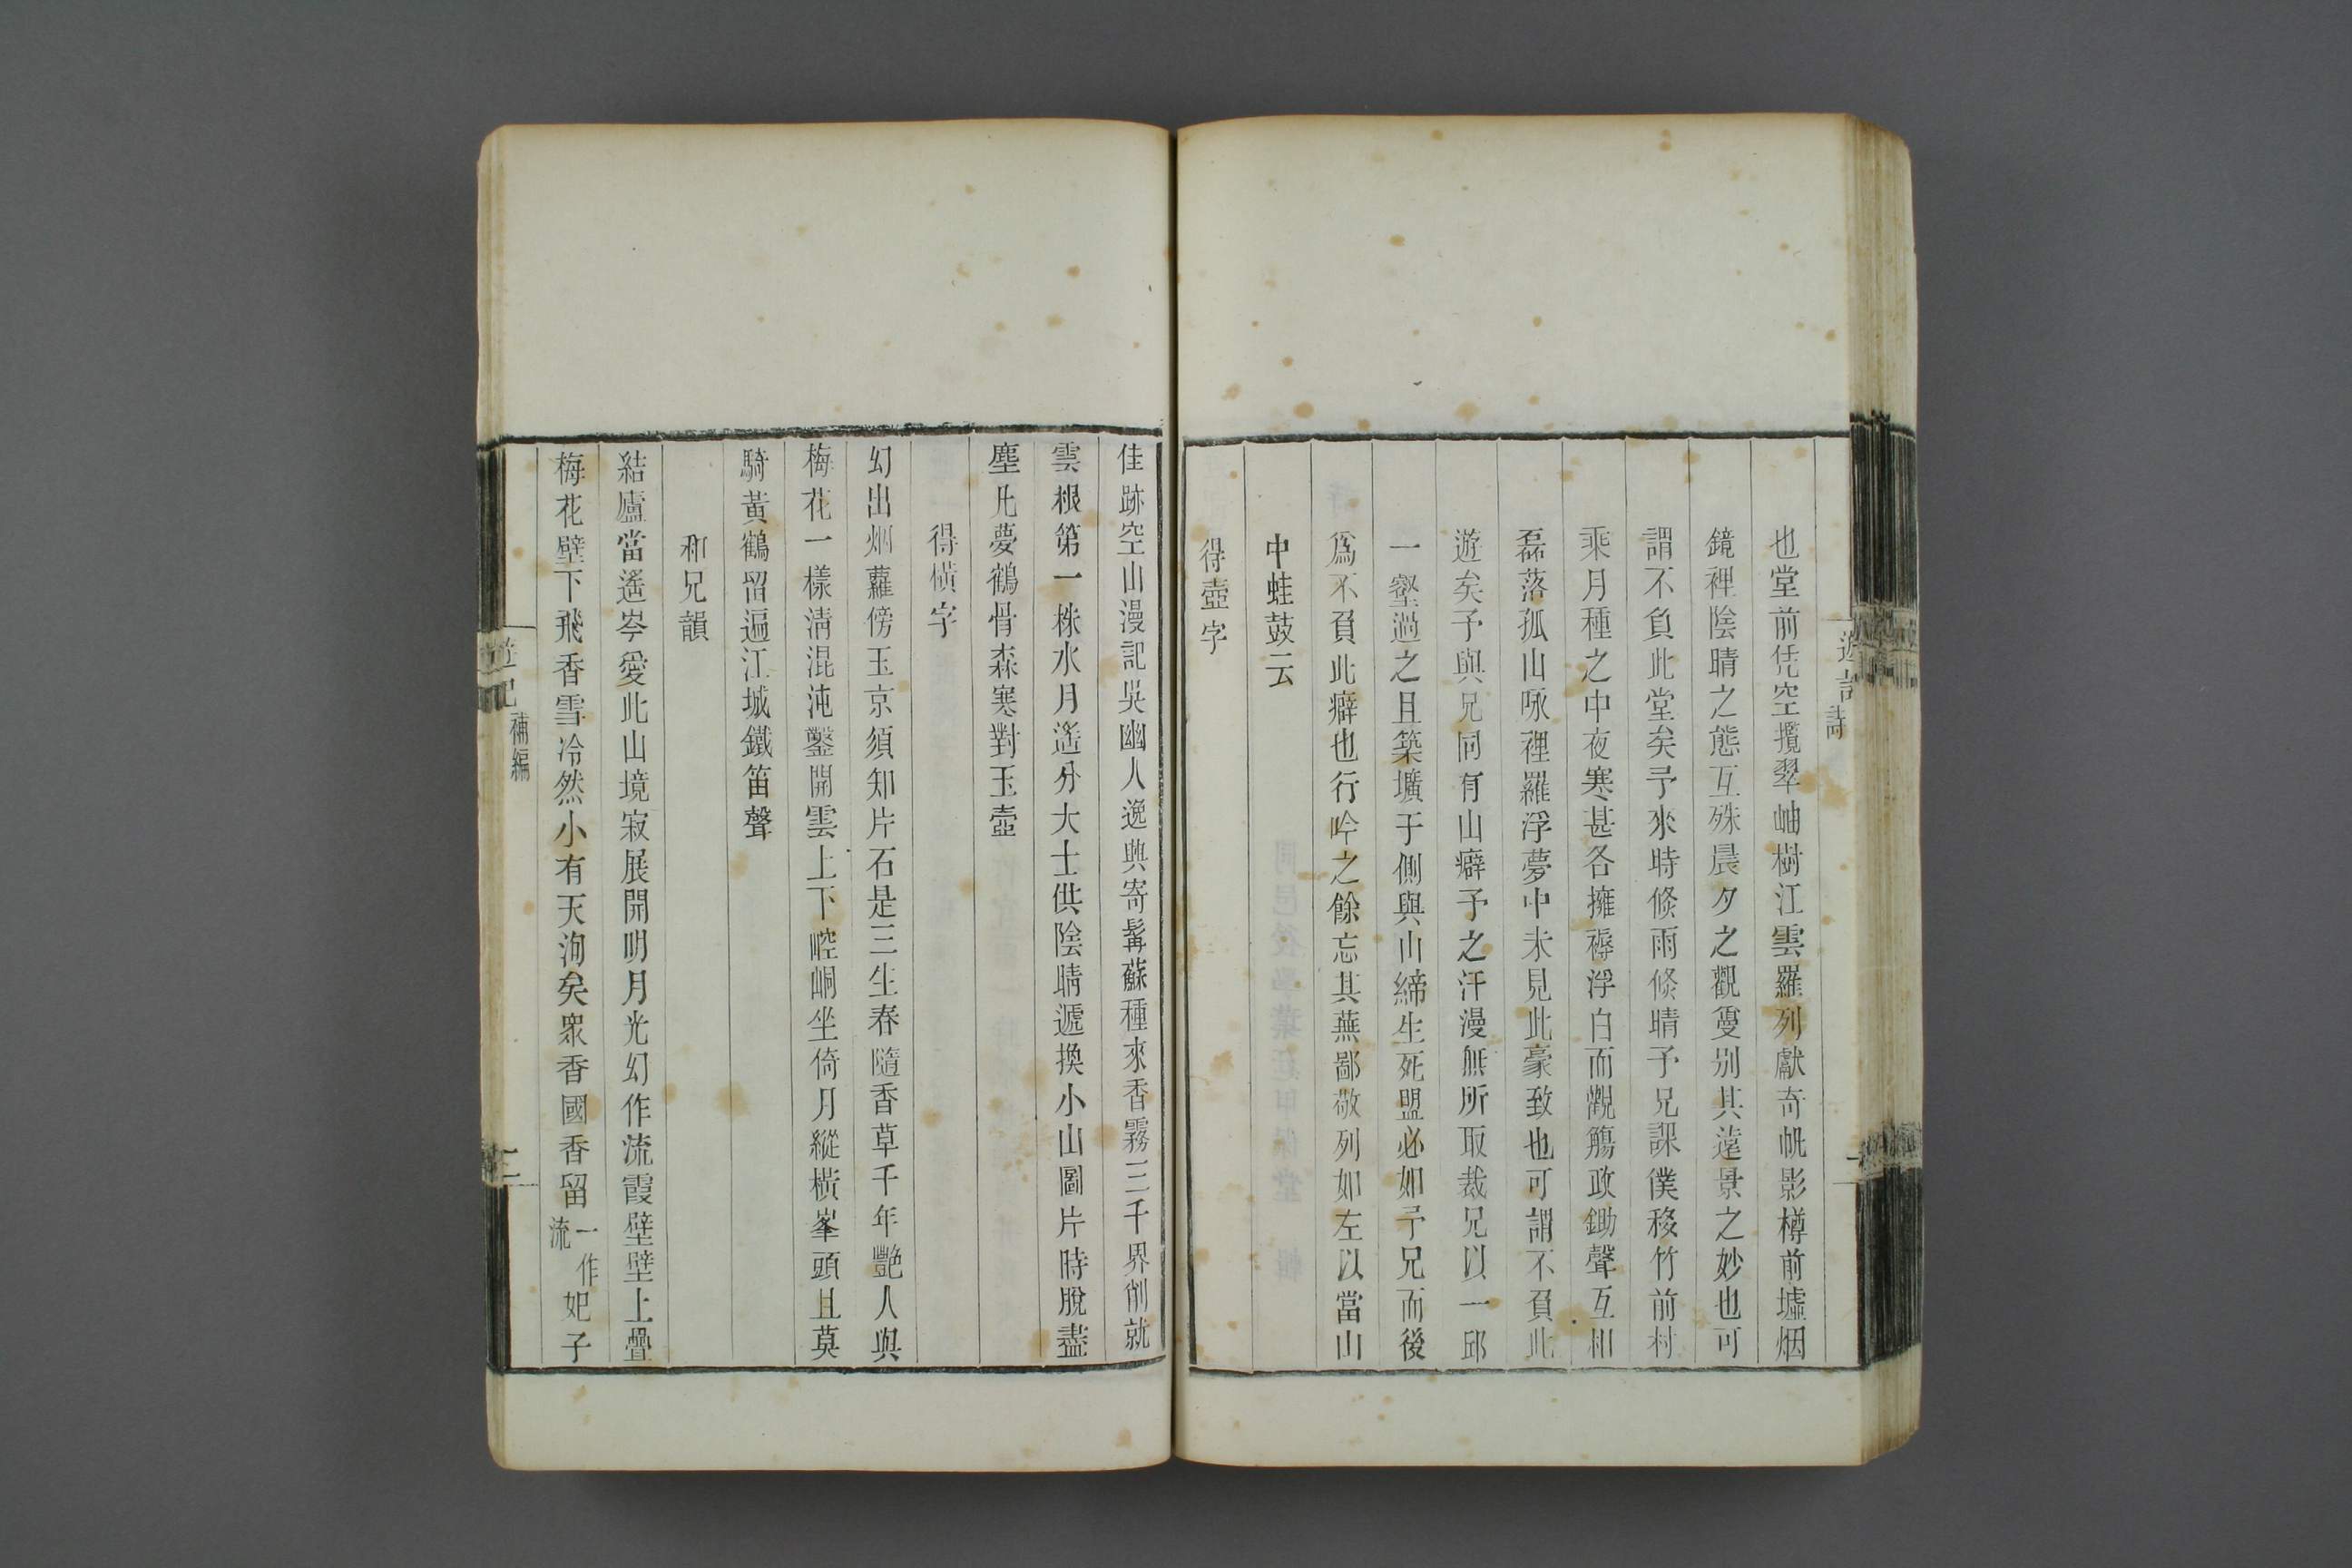 也堂前凭空攬翠岫樹江雲羅列獻奇帆影樽前墟烟
鏡裡陰晴之態互殊晨夕之觀敻别其遠景之妙也可
謂不負此堂矣予來時倏雨倏晴予兄課僕移竹前村
乘月種之中夜寒甚各擁褥浮白而觀觴政鋤聲互相
磊落孤山咏裡羅浮夢中未見此豪致也可謂不負此
遊矣予與兄同有山癖予之汗漫無所取裁兄以一邱
一壑過之且築壙于側與山締生死盟必如予兄而後
爲不負此癖也行吟之餘忘其蕪鄙敬列如左以當山
中蛙鼓云
得壺字
佳跡空山漫記吳幽人逸興寄髯蘇種來香霧三千界削就
雲根第一株水月遙分大士供陰晴遞換小山圖片時脫盡
塵凡夢鶴骨森寒對玉壺
得橫字
幻出烟蘿傍玉京須知片石是三生春隨香草千年艷人與
梅花一樣淸混沌鑿開雲上下崆峒坐倚月縱橫峯頭且莫
騎黃鶴留遍江城鐵笛聲
和兄韻
結廬當遙岑愛此山境寂展開明月光幻作流霞壁壁上疊
梅花壁下飛香雪冷然小有天洵矣衆香國香留一作流妃子
遊記
補編